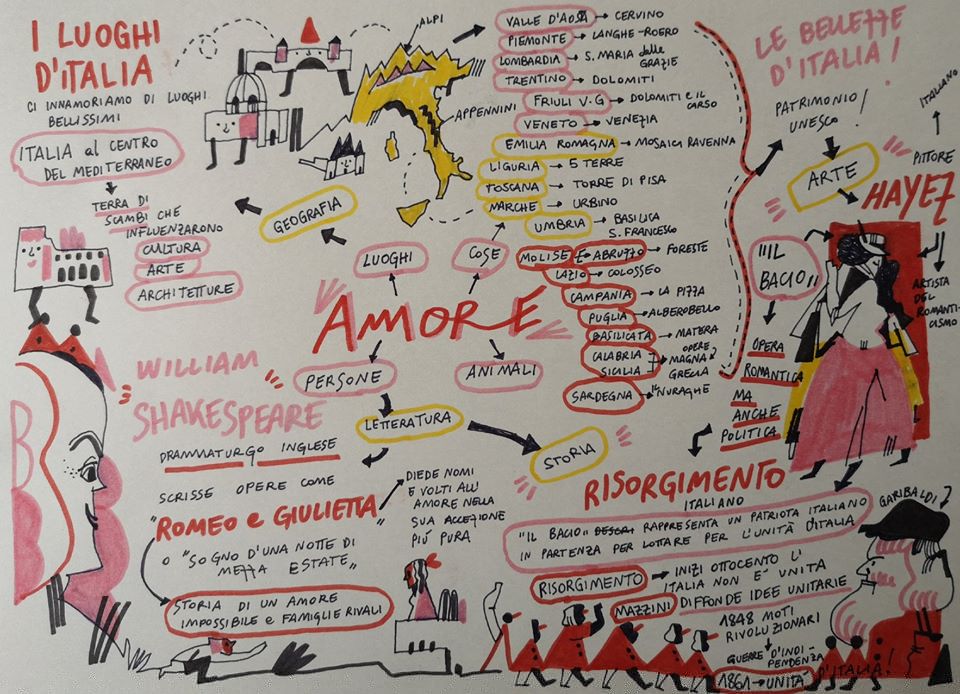 I LUOGHI
D'ITALIA
CI INNAMORIAMO DI LUOGHI
BELLISSIMI
ITALIA al CENTRO
DEL MEDITERRANEO
TERRA DI
SCAMBI CHE
INFLUENZARONO
CULTURA
ARTE
ARCHITETTURE
ALPI
APPENNINI
GEOGRAFIA
VALLE D'AOSTA → CERVINO
PIEMONTE → LANGHE-ROERO
LOMBARDIA → S. MARIA delle
GRAZIE
TRENTINO → DOLOMITI
FRIULI V.G → DOLOMITI E IL
CARSO
VENETO → VENEZIA
EMILIA ROMAGNA → MOSAICI RAVENNA
LIGURIA → 5 TERRE
TOSCANA → TORRE DI PISA
MARCHE → URBINO
UMBRIA → BASILICA
S. FRANCESCO
MOLISE E ABRUZZO → FORESTE
LAZIO → COLOSSEO
CAMPANIA → LA PIZZA
PUGLIA → ALBEROBELLO
BASILICATA → MATERA
CALABRIA
SICILIA
OPERE
MAGNA
GRECIA
SARDEGNA → NURAGHE
LE BELLEZZE
D'ITALIA!
PATRIMONIO!
UNESCO
ARTE
ITALIANO
PITTORE
HAYEZ
ARTISTA
DEL
ROMANTI-
CISMO
"IL
BACIO"
OPERA
ROMANTICA
MA
ANCHE
POLITICA
LUOGHI
COSE
AMORE
PERSONE
ANIMALI
LETTERATURA
STORIA
WILLIAM
SHAKESPEARE
DRAMMATURGO INGLESE
SCRISSE OPERE COME
"ROMEO e GIULIETTA"
O "SOGNO D'UNA NOTTE DI
MEZZA ESTATE"
STORIA DI UN AMORE
IMPOSSIBILE e FAMIGLIE RIVALI
DIEDE NOMI
E VOLTI ALL'
AMORE NELLA
SUA ACCEZIONE
PIÙ PURA
RISORGIMENTO
ITALIANO
"IL BACIO" RAPPRESENTA UN PATRIOTA ITALIANO
IN PARTENZA PER LOTTARE PER L'UNITÀ d'ITALIA
GARIBALDI
RISORGIMENTO → INIZI OTTOCENTO L'
ITALIA NON E' UNITA
MAZZINI DIFFONDE IDEE UNITARIE
1848 MOTI
RIVOLUZIONARI
GUERRE D'INDI-
PENDENZA
1861 → UNITÀ D'ITALIA!